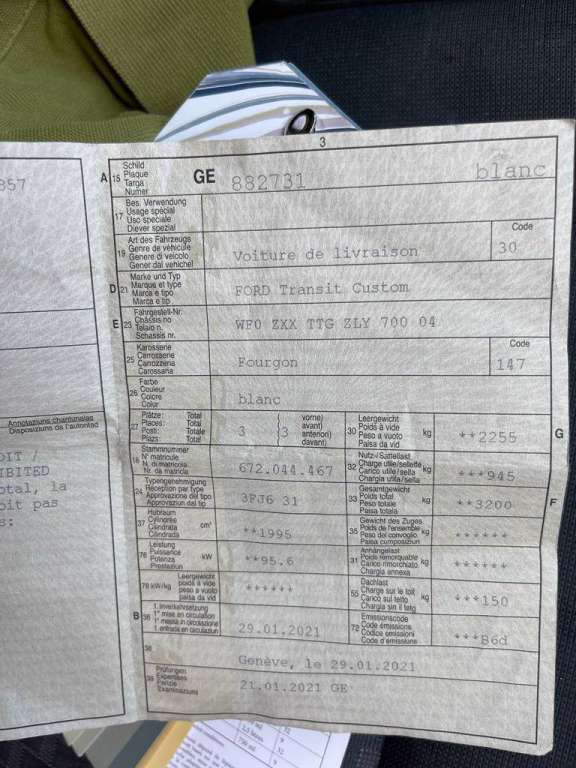 3
A 15 Schild
Plaque
Targa
Numer
GE 882731 blanc
17 Bes. Verwendung
Usage spécial
Uso speciale
Diever spezial
19 Art des Fahrzeugs
Genre de véhicule
Genere di veicolo
Gener dal vehichel
Voiture de livraison
Code
30
D 21 Marke und Typ
Marque et type
Marca e tipo
Marca e tip
FORD Transit Custom
E 23 Fahrgestell-Nr.
Châssis no
Telaio n.
Schassis nr.
WF0 ZXX TTG ZLY 700 04
25 Karosserie
Carrosserie
Carrozzeria
Carossaria
Fourgon
Code
147
26 Farbe
Couleur
Colore
Colur
blanc
27 Plätze: Total
Places: Total
Posti: Totale
Plazs: Total
3
(3
vorne)
avant)
anteriori)
davant)
30 Leergewicht
Poids à vide
Peso a vuoto
Paisa da vid
kg
**2255
G
18 Stammnummer
N° matricule
N. di matricola
Nr. da matricla
672.044.467
32 Nutz-/Sattellast
Charge utile/sellette
Carico utile/sella
Chargia utila/sella
kg
***945
24 Typengenehmigung
Réception par type
Approvazione del tipo
Approvaziun dal tip
3FJ6 31
33 Gesamtgewicht
Poids total
Peso totale
Paisa totala
kg
**3200
F
37 Hubraum
Cylindrée
Cilindrata
Cilindrada
cm³
**1995
35 Gewicht des Zuges
Poids de l'ensemble
Peso del convoglio
Paisa cumposiziun
kg
******
76 Leistung
Puissance
Potenza
Prestaziun
kW
**95.6
31 Anhängelast
Poids remorquable
Carico rimorchiato
Chargia annexa
kg
******
78 kW/kg
Leergewicht
poids à vide
peso a vuoto
paisa da vid
******
55 Dachlast
Charge sur le toit
Carico sul tetto
Chargia sin il tetg
kg
***150
B 36 1. Inverkehrsetzung
1re mise en circulation
1a messa in circolazione
1. entrada en circulaziun
29.01.2021
72 Emissionscode
Code émissions
Codice emissioni
Code d'emissiuns
***B6d
38
Genève, le 29.01.2021
39 Prüfungen
Expertises
Perizie
Examinaziuns
21.01.2021 GE
857
Annotaziuns chantunalas
Disposiziuns da l'autoritad
DIT /
IBITED
otal, la
oit pas
s: